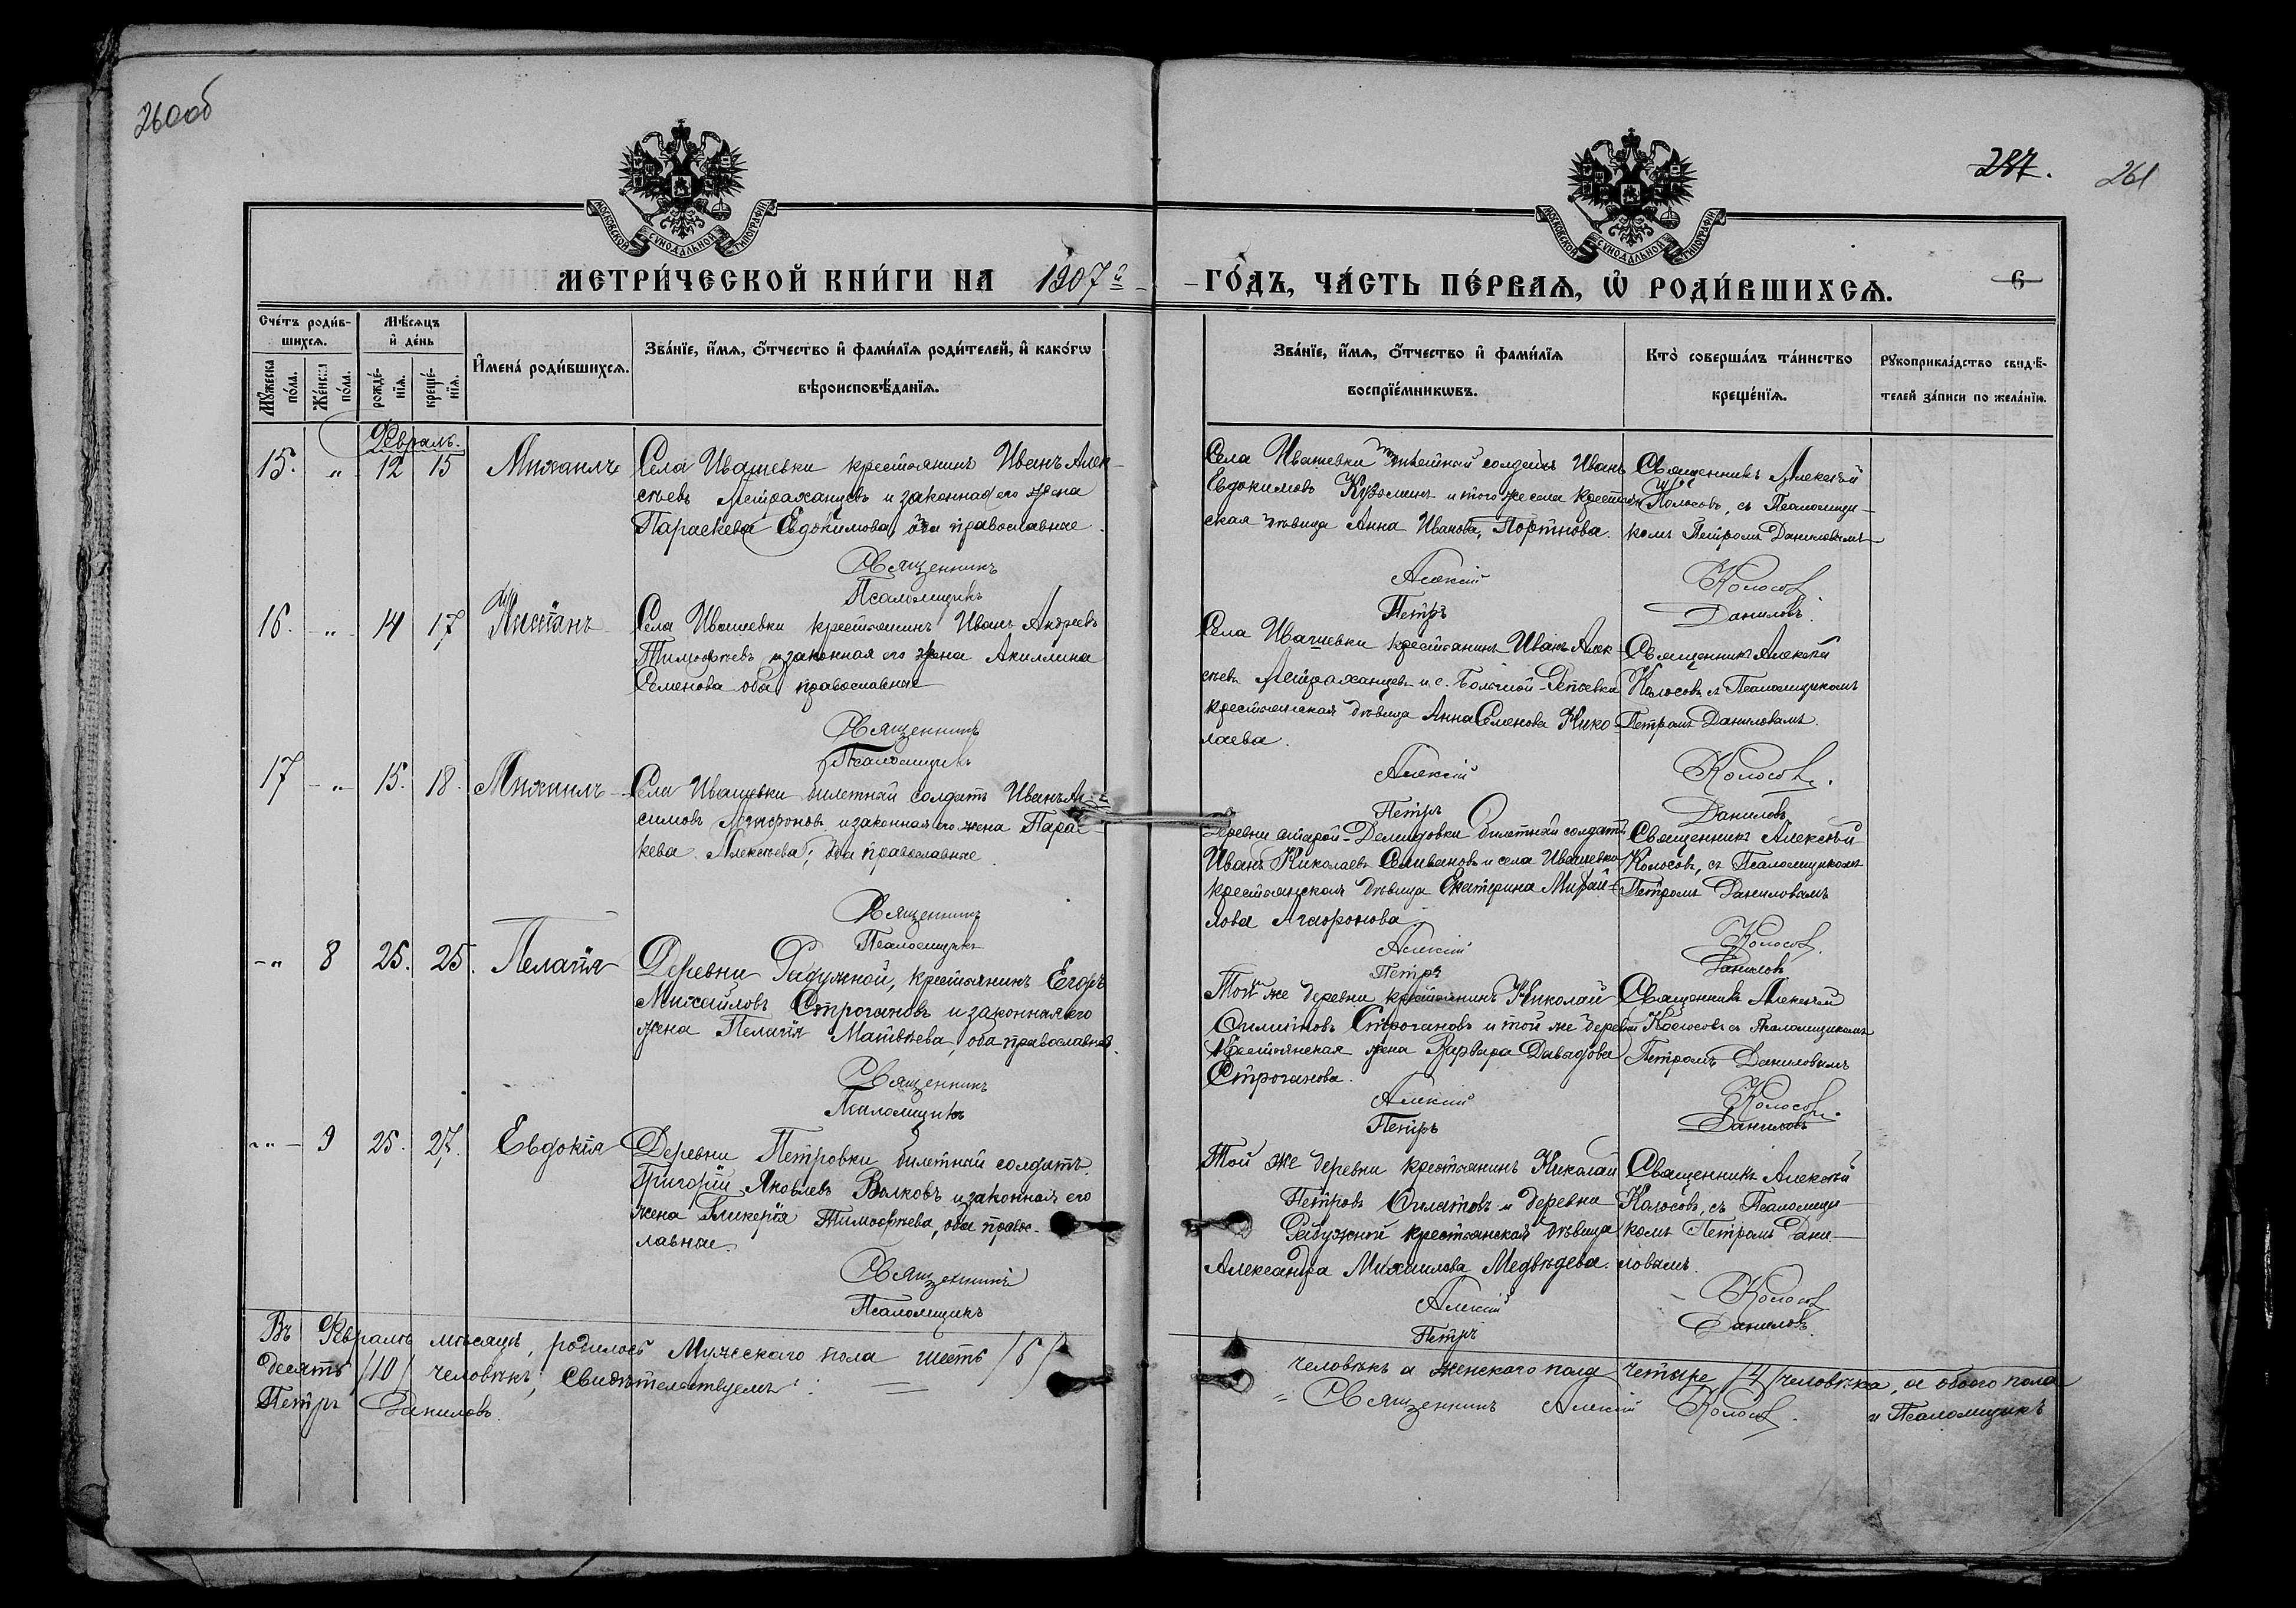 260об
287.
261
МОСКОВСКОЙ СѴНОДАЛЬНОЙ ТИПОГРАФІИ
МОСКОВСКОЙ СѴНОДАЛЬНОЙ ТИПОГРАФІИ
МЕТРИ́ЧЕСКОЙ КНИ́ГИ НА 1907й
ГО́ДЪ, ЧА́СТЬ ПЕ́РВАѦ, Ѡ҆ РОДИ́ВШИХСѦ.
6
Сче́тъ роди́в-
шихсѧ.
Мѣ́сѧцъ
и҆ де́нь
Мꙋ́жеска
по́ла.
Же́нска
по́ла.
рожде́-
нїѧ.
креще́-
нїѧ.
И҆мена̀ роди́вшихсѧ.
Зва́нїе, и҆́мѧ, ѻ҆́тчество и҆ фами́лїѧ роди́телей, и҆ како́гѡ
вѣроисповѣ́данїѧ.
Зва́нїе, и҆́мѧ, ѻ҆́тчество и҆ фами́лїѧ
воспрїе́мникѡвъ.
Кто̀ соверша́лъ та́инство
креще́нїѧ.
Рꙋкоприкла́дство свидѣ́-
телей за́писи по жела́нїю.
Февраль.
15. „ 12 15 Михаилъ
Села Ивашевки крестьянинъ Иванъ Алек-
сѣевъ Астраханцевъ и законная его жена
Параскева Евдокимова, оба православные.
Священникъ
Псаломщикъ
Села Ивашевки солдатъ Иванъ
Евдокимовъ Кузьминъ и того же села крестьян
ская дѣвица Анна Иванова, Портнова.
Алексій
Петръ
Священникъ Алексѣй
Колосовъ, съ Псаломщи-
комъ Петромъ Даниловымъ
Колосов.
Данилов.
16. „ 14 17
Села Ивашевки крестьянинъ Иванъ Андреевъ
Тимофѣевъ и законная его жена Акиллина
Семенова оба православные
Священникъ
Псаломщикъ
Села Ивашевки крестьянинъ Иванъ Алек-
сѣевъ Астраханцевъ и с. Большой-Репьевки
крестьянская дѣвица Анна Семенова Нико-
лаева.
Алексій
Петръ
Священникъ Алексѣй
Колосовъ съ Псаломщикомъ
Петромъ Даниловымъ.
Колосов.
Данилов
17 „ 15. 18. Михаилъ
Села Ивашевки билетный солдатъ Иванъ Ани-
симовъ Агафоновъ и законная его жена Парас-
кева Алексѣева; оба православные.
Священникъ
Псаломщикъ
Деревни старой-Демидовки билетный солдатъ
Иванъ Николаевъ Селивановъ и села Ивашевки
крестьянская дѣвица Екатерина Михай-
лова Агафонова
Алексій
Петръ
Священникъ Алексѣй
Колосовъ, съ Псаломщикомъ
Петромъ Даниловымъ
Колосов.
Данилов
„ 8 25. 25. Пелагія
Деревни Радужной, крестьянинъ Егоръ
Михайловъ Строгановъ и законная его
жена Пелагія Матвѣева, оба православные.
Священникъ
Псаломщикъ
Той же деревни крестьянинъ Николай
Строгановъ и той же деревни
Крестьянская жена Варвара Давыдова
Строганова.
Алексій
Петръ
Священникъ Алексѣй
Колосовъ съ Псаломщикомъ
Петромъ Даниловымъ
Колосов.
Данилов
„ 9 25. 27. Евдокія
Деревни Петровки билетный солдатъ
Григорій Яковлевъ Волковъ и законная его
жена Гликерія Тимофѣева, оба право-
славные.
Священникъ
Псаломщикъ
Той же деревни крестьянинъ Николай
Петровъ и деревни
Радужной крестьянская дѣвица
Александра Михаилова Медвѣдева.
Алексій
Петръ
Священникъ Алексѣй
Колосовъ, съ Псаломщи-
комъ Петромъ Дани-
ловымъ.
Колосов
Данилов.
Въ Февралѣ мѣсяцѣ, родилось Мужескаго пола шесть /6/ человѣкъ а женскаго пола четыре /4/ человѣка, а обоего пола
десять /10/ человѣкъ, Свидѣтельствуемъ: Священникъ Алексій Колосов. и Псаломщикъ
Петръ Данилов.